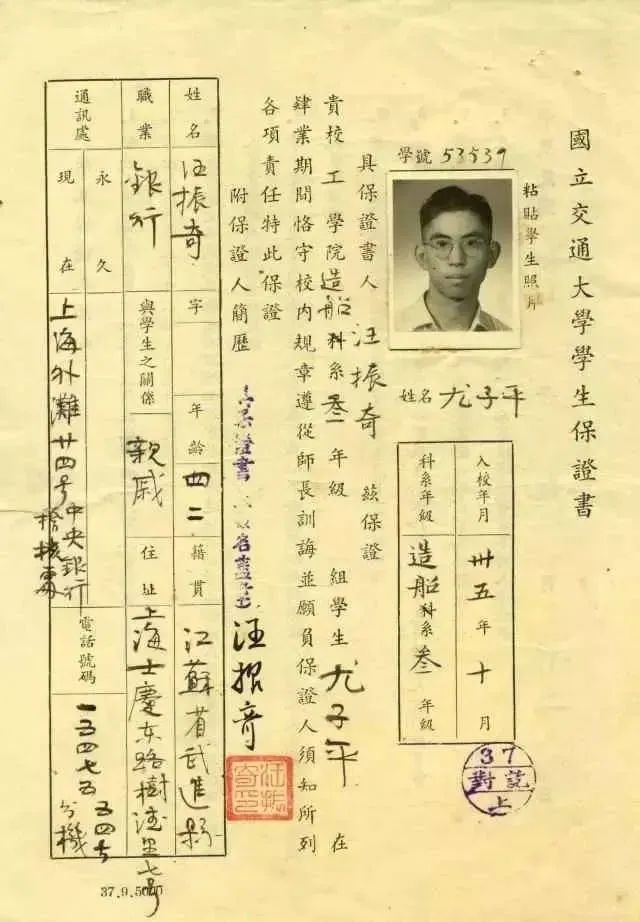 國立交通大學學生保證書
粘貼學生照片
學號 53539
姓名 尤子平
入校年月 卅五年十月
科系年級 造船科系叁年級
37
對訖
上
具保證書人汪振奇茲保證
貴校工學院造船科系叁年級 組學生尤子平在
肄業期間恪守校內規章遵從師長訓誨並願負保證人須知所列
各項責任特此保證
汪振奇
附保證人簡歷
姓名 汪振奇 字 年齡 四二 籍貫 江蘇省武進縣
職業 銀行 與學生之關係 親戚 住址 上海 慶東路樹德里七號
通訊處 永久 現在 上海外灘廿四號中央銀行
電話號碼 一五四七五 五四七 分機
37.9.5000